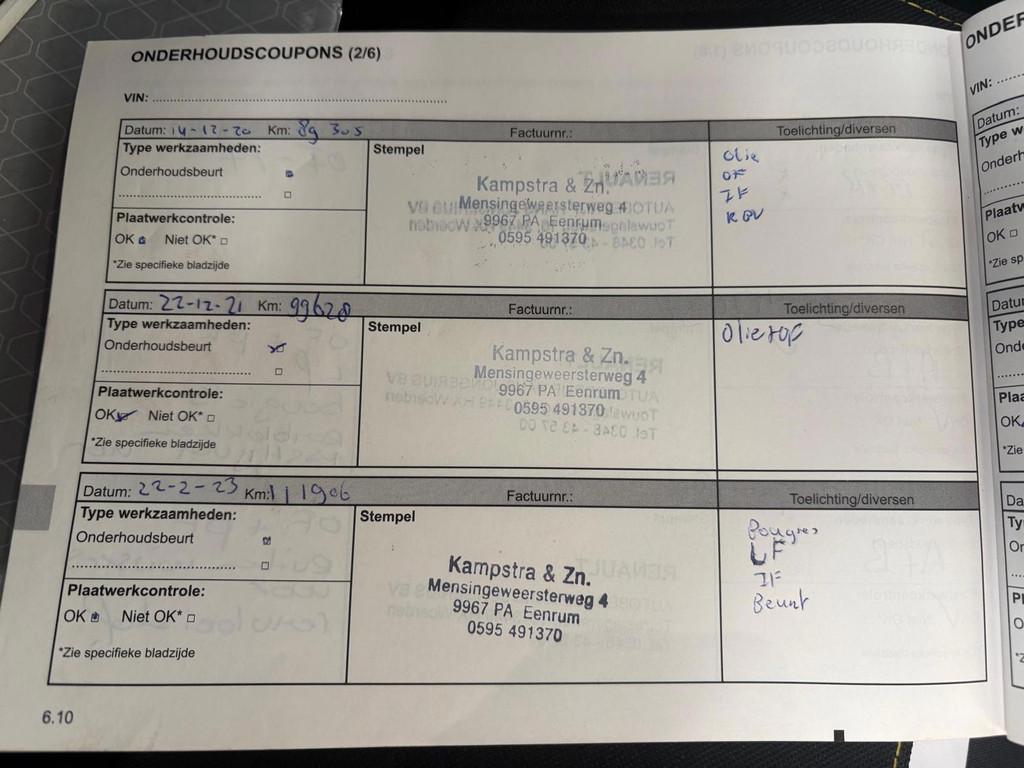 ONDERHOUDSCOUPONS (2/6)
VIN:
Datum: 14-12-20 Km: 89 305 Factuurnr.: Toelichting/diversen
Type werkzaamheden:
Onderhoudsbeurt
Stempel
Kampstra & Zn.
Mensingeweersterweg 4
9967 PA Eenrum
0595 491370
Olie
OF
IF
Plaatwerkcontrole:
OK Niet OK*
*Zie specifieke bladzijde
Datum: 22-12-21 Km: 99628 Factuurnr.: Toelichting/diversen
Type werkzaamheden:
Onderhoudsbeurt
Stempel
Kampstra & Zn.
Mensingeweersterweg 4
9967 PA Eenrum
0595 491370
Plaatwerkcontrole:
OK Niet OK*
*Zie specifieke bladzijde
Datum: 22-2-23 Km: 111906 Factuurnr.: Toelichting/diversen
Type werkzaamheden:
Onderhoudsbeurt
Stempel
Kampstra & Zn.
Mensingeweersterweg 4
9967 PA Eenrum
0595 491370
LF
IF
Beurt
Plaatwerkcontrole:
OK Niet OK*
*Zie specifieke bladzijde
6.10